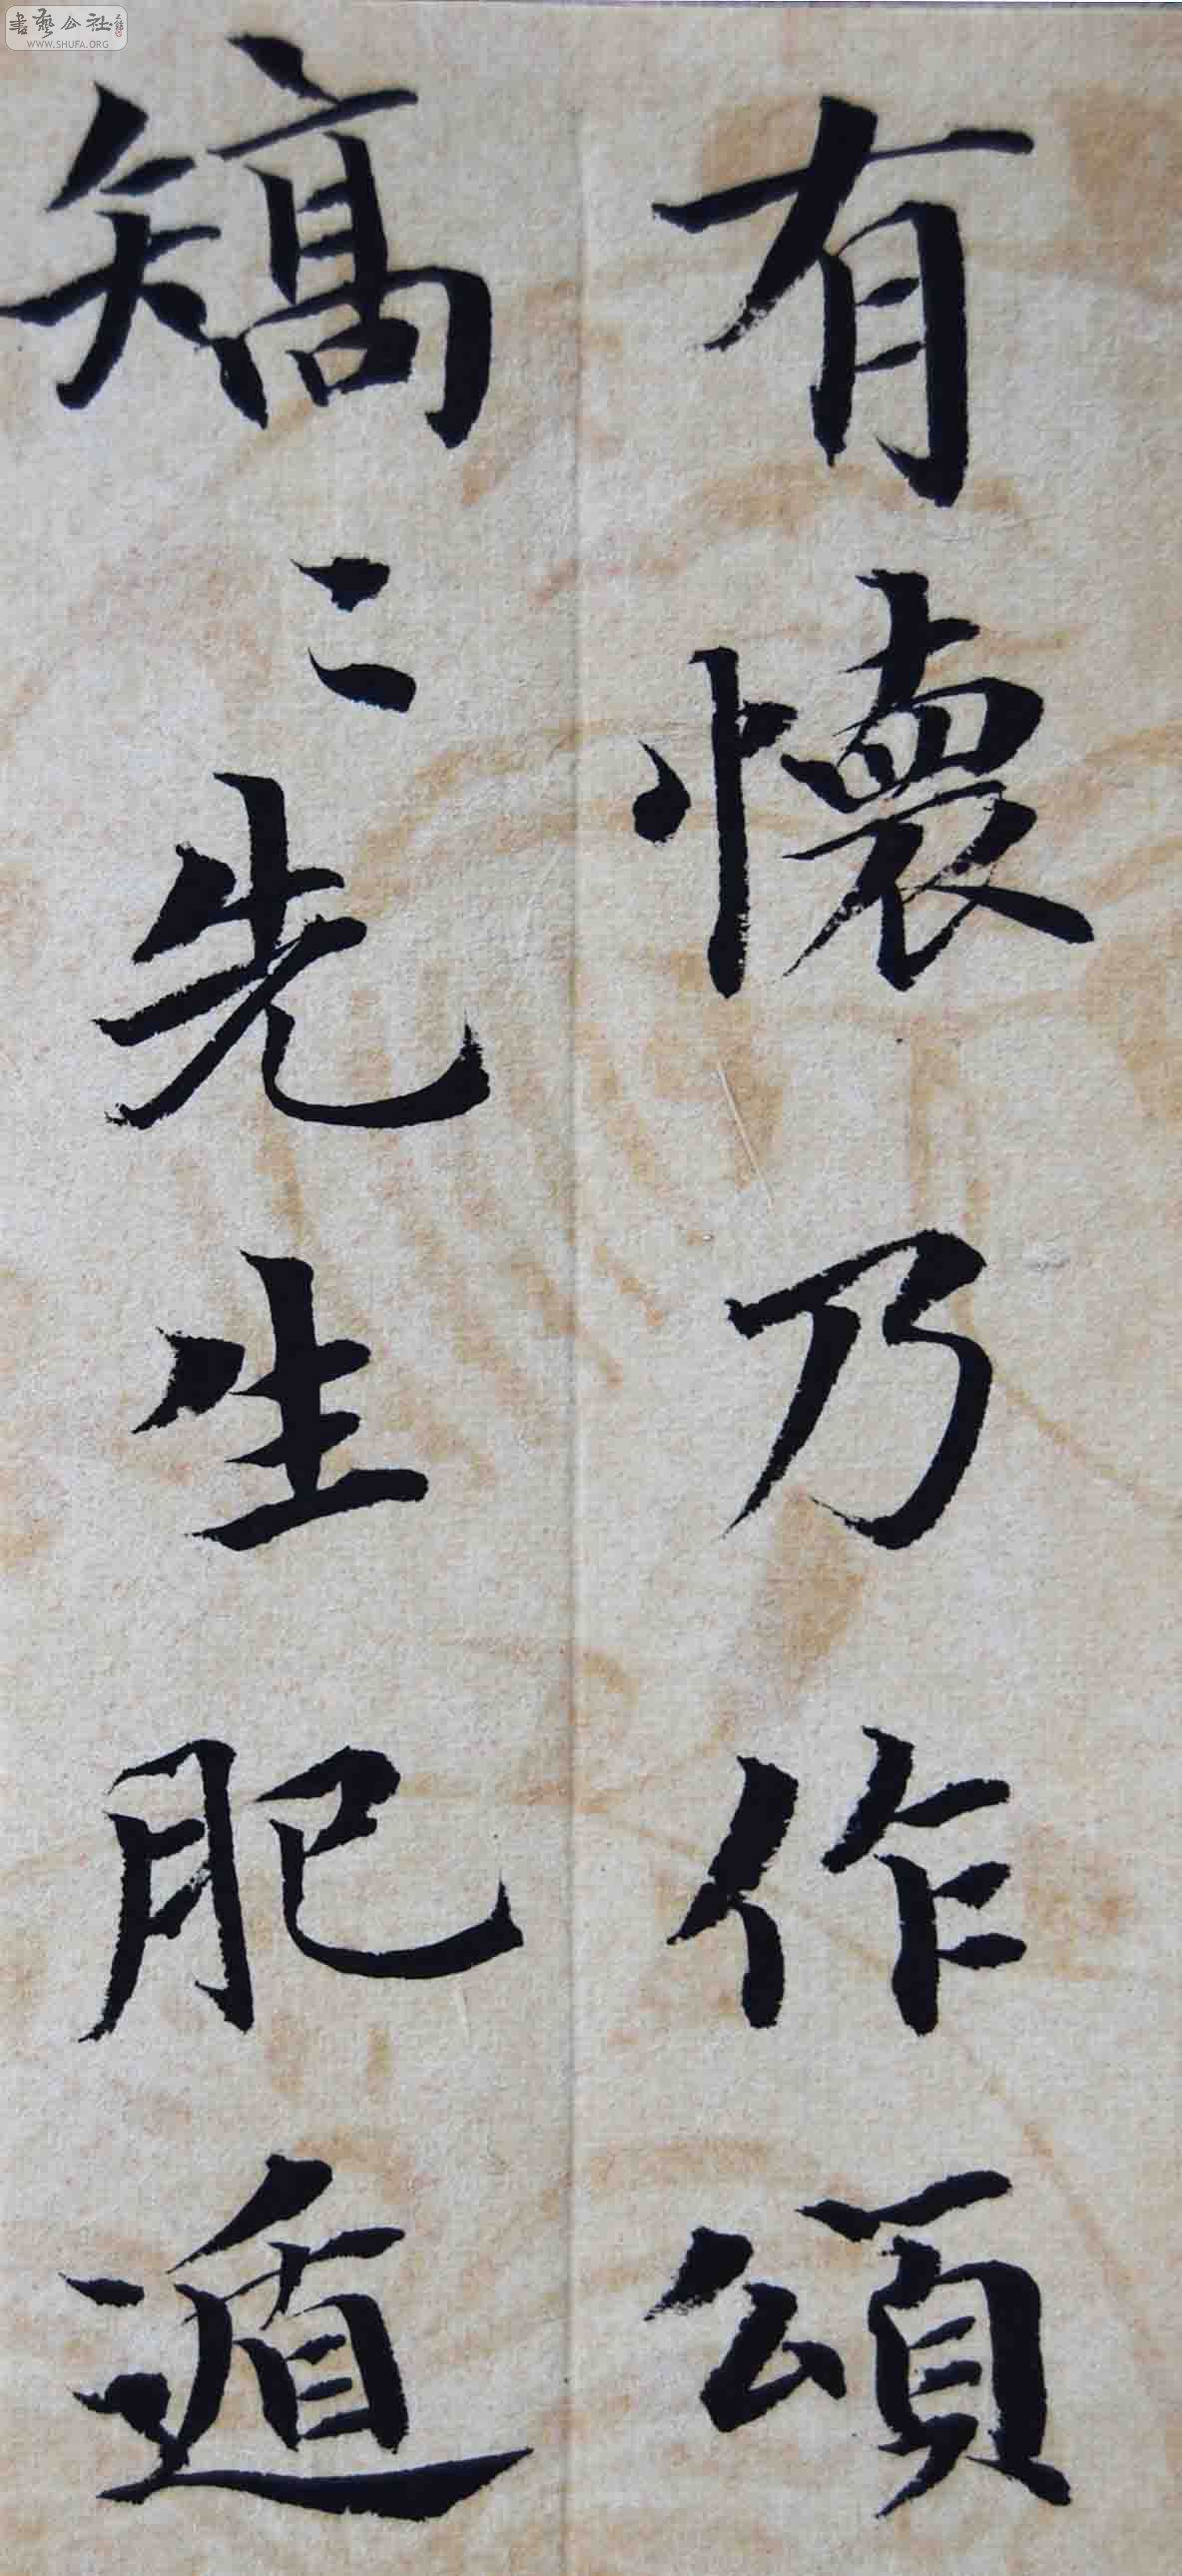 有懷乃作頌
矯〻先生肥遁
書藝公社
WWW.SHUFA.ORG